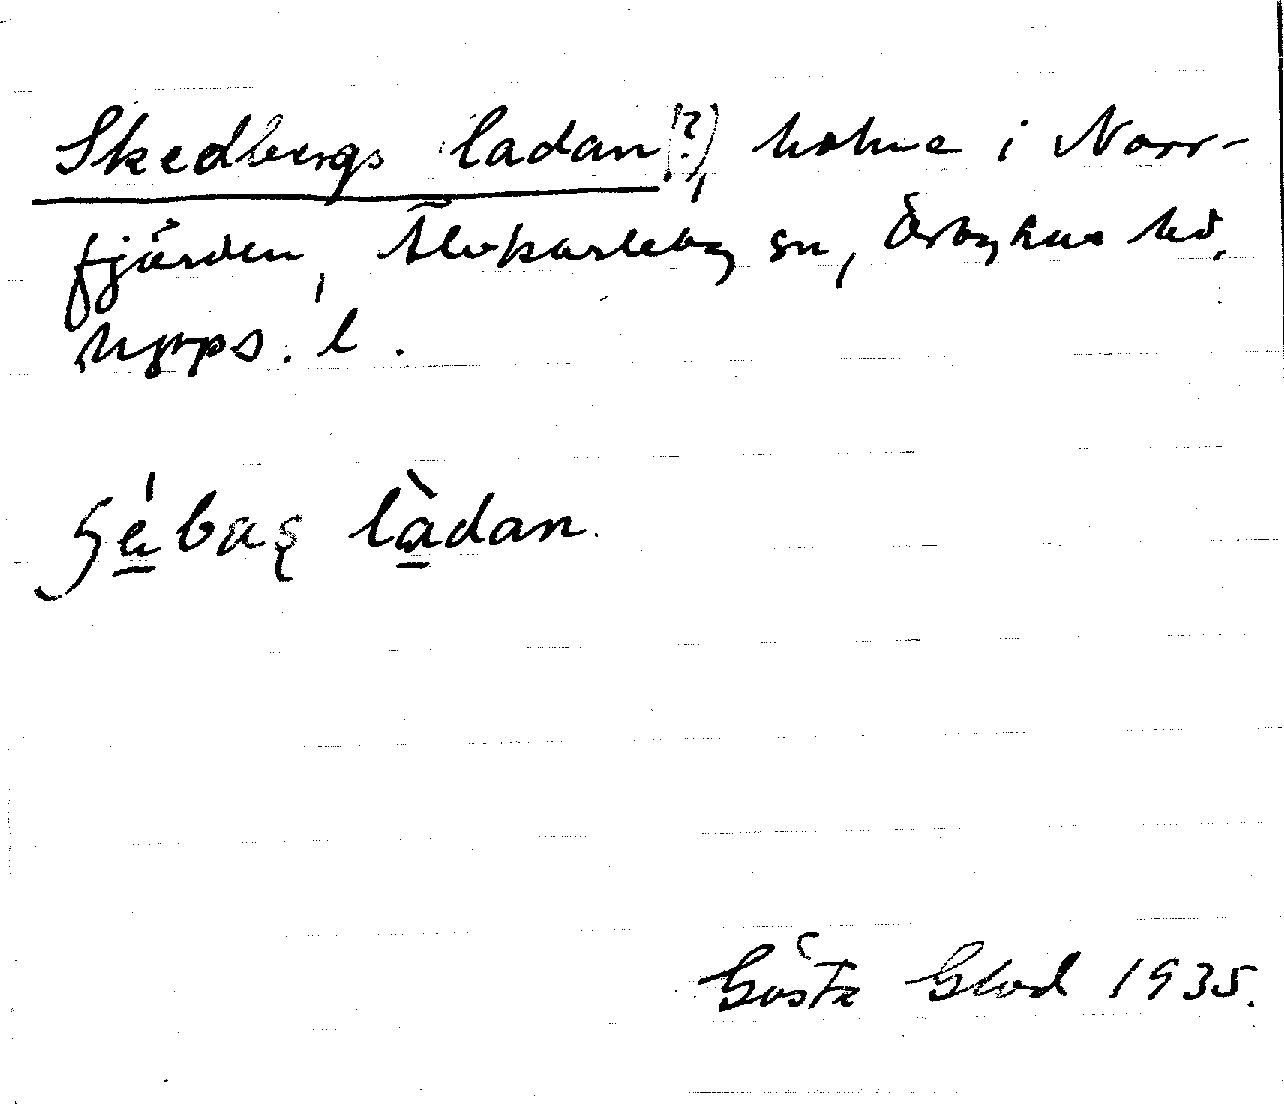 Skedbergs ladan(?), holme i Norr-
fjärden, Älvkarleby sn, Örbyhus hd,
Upps. l.
lådan.
Gösta Glad 1935.